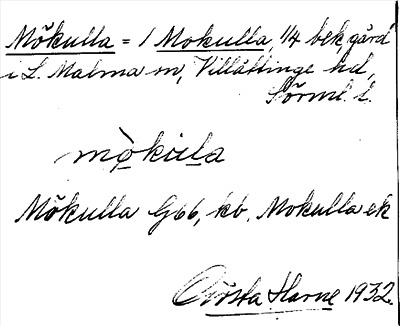 Mökulla = 1 Mokulla, 1/4 bek, gård
i L. Malma sn, Villåttinge hd,
Sörml. l.
mò̱kùla̱
Mökulla G66, kb. Mokulla ek
Harne 1932.